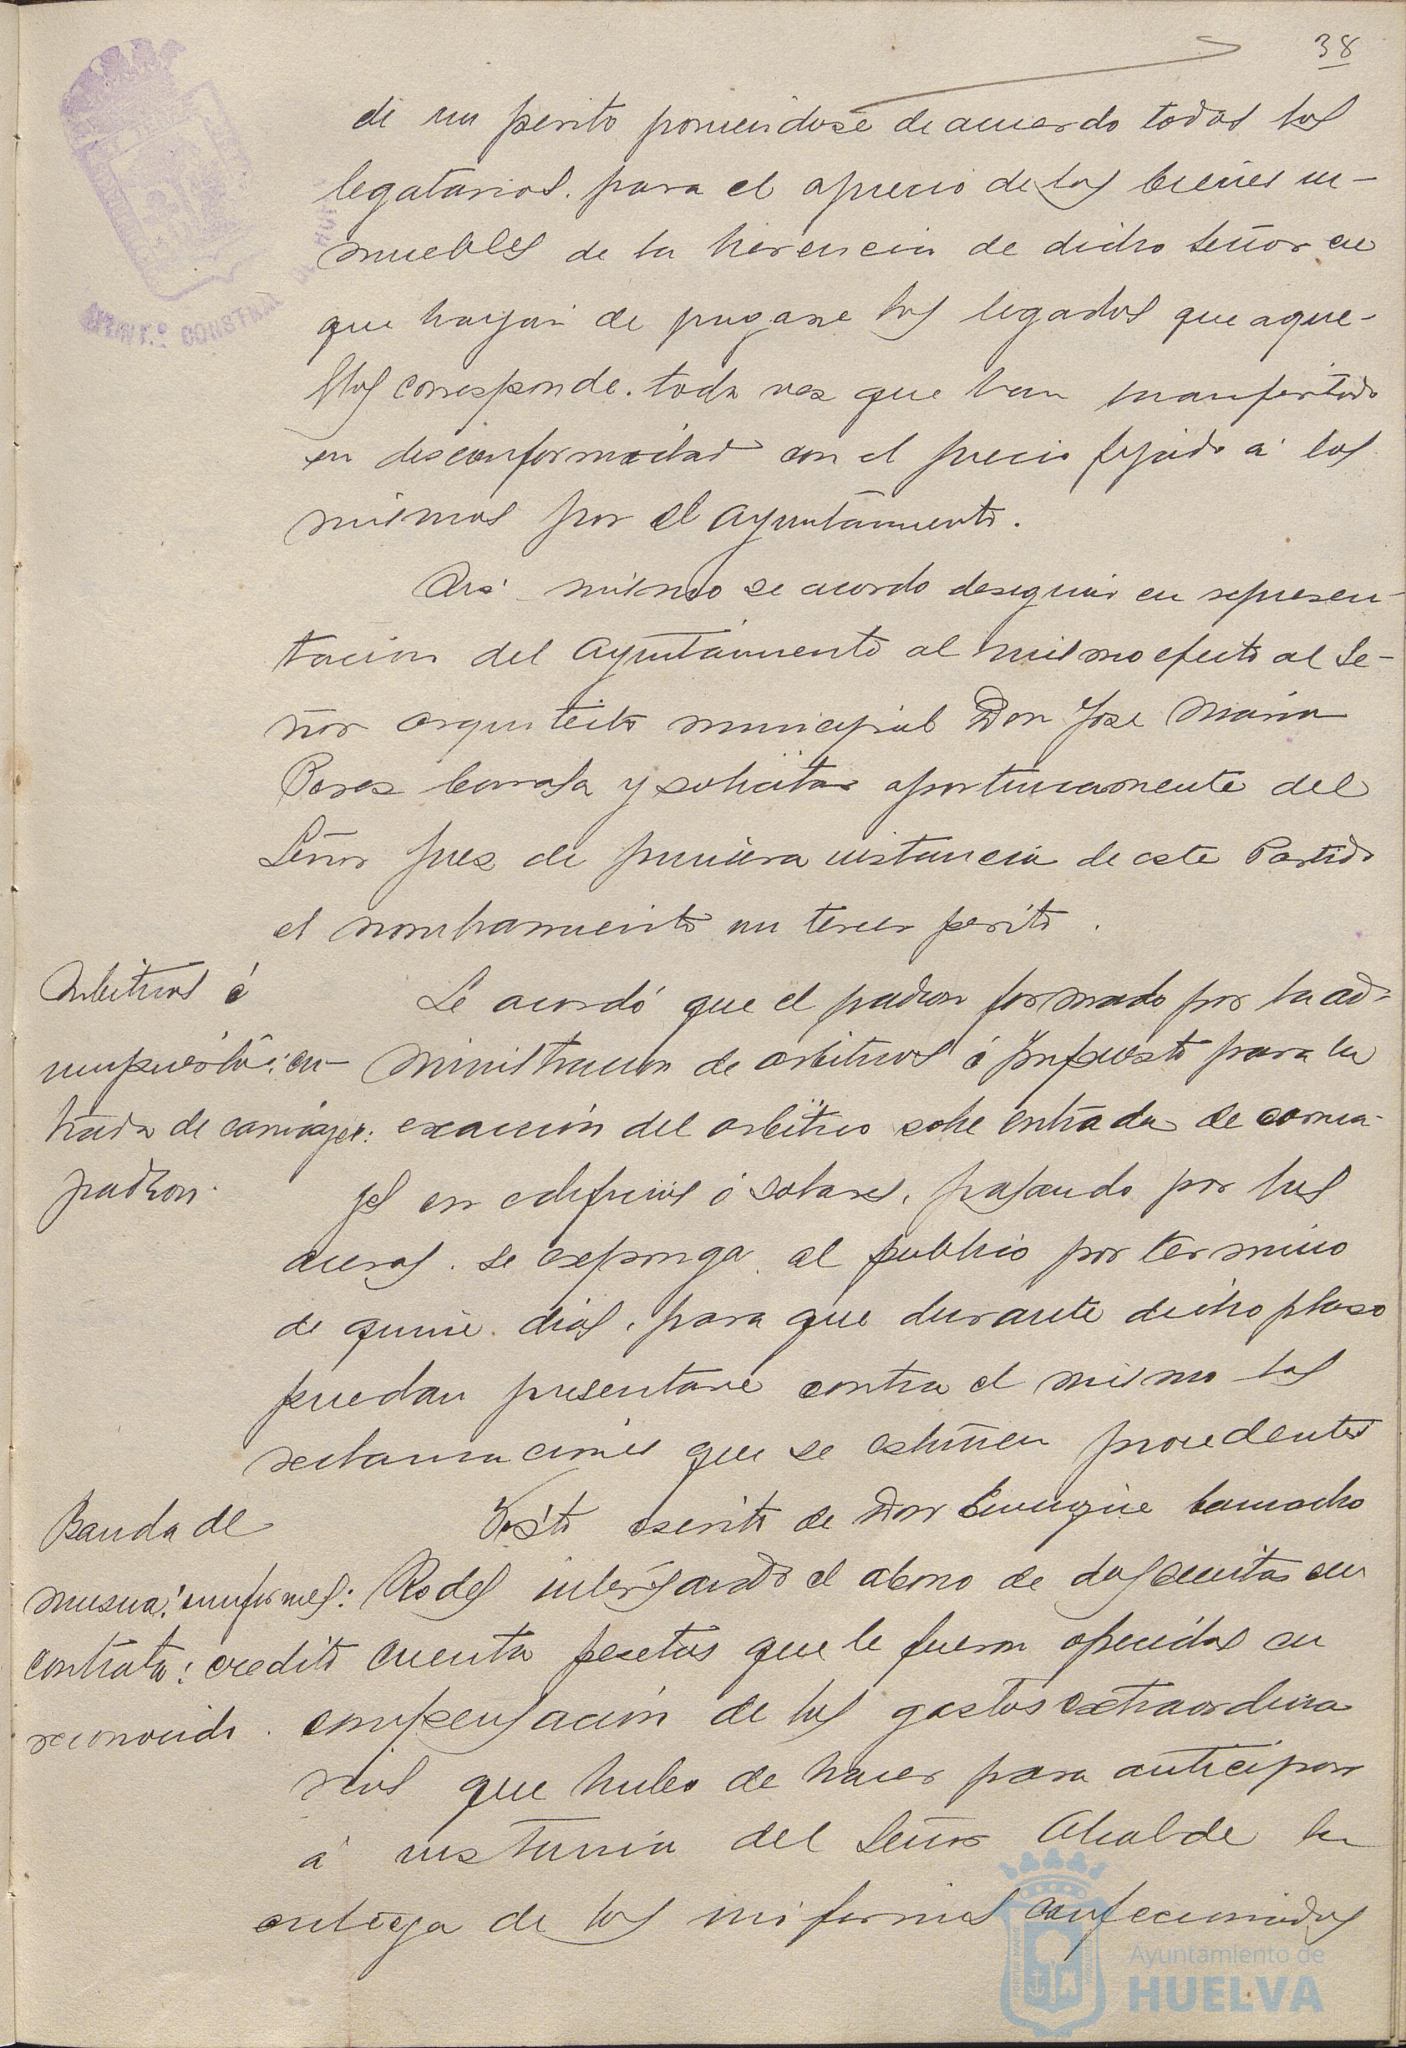 38
de un perito poniendose de acuerdo todos los
legatarios. para el aprecio de los bienes in-
muebles de la herencia de dicho Señor en
que hayan de pagarse los legados que aque-
llos corresponde. toda vez que han manifestado
su disconformidad con el precio fijado á los
mismos por el Ayuntamiento.
Asi mismo se acordo designar en represen-
tacion del Ayuntamiento al mismo efecto al Se-
ñor arquitecto municipal Don Jose Maria
Perez Carrasa y solicitar oportunamente del
Señor Juez de primera instancia de este Partido
el nombramiento un tercer perito.
Arbitrios é
impuestos: en-
trada de carruajes:
padron.
Se acordó que el padron formado por la ad-
ministracion de arbitrios é Impuesto para la
exacción del arbitrio sobre entrada de carrua-
jes en edificios ó solares, pasando por las
aceras. se exponga al publico por termino
de quince dias, para que durante dicho plaso
puedan presentarse contra el mismo las
reclamaciones que se estimen procedentes
Banda de
musica: uniformes:
contrata: credito
reconocido.
Visto escrito de Don Enrique Camacho
Rodes interesando el abono de doscientas cin
cuenta pesetas que le fueron ofrecidas en
compensación de los gastos extraordina
rios que hubo de hacer para anticipar
á instancia del Señor Alcalde la
entrega de los uniformes confeccionados
AYUNT.º CONSTNAL DE HUELVA
Ayuntamiento de
HUELVA